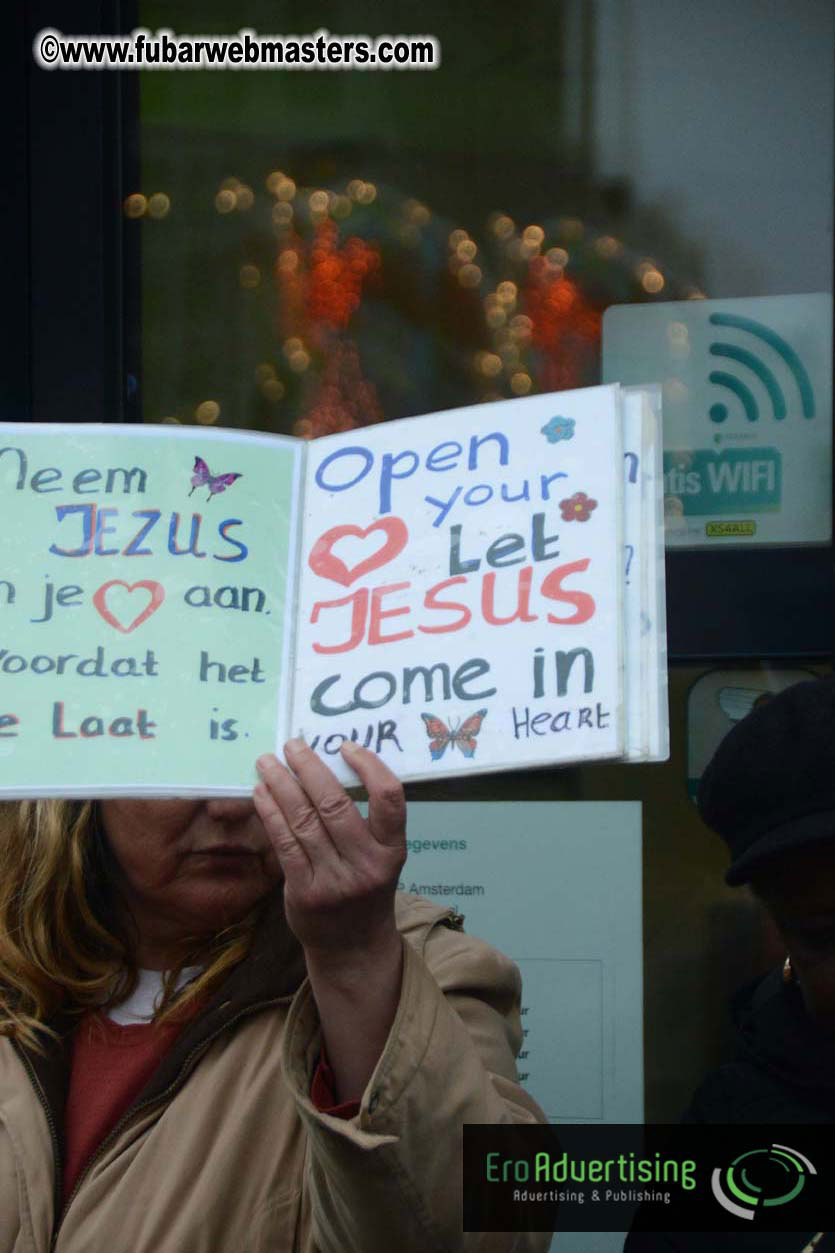 ©www.fubarwebmasters.com
Neem
JEZUS
je aan.
Voordat het
Laat is.
Open
your
Let
JESUS
come in
YOUR Heart
?
WIFI
XS4ALL
Amsterdam
EroAdvertising
Advertising & Publishing